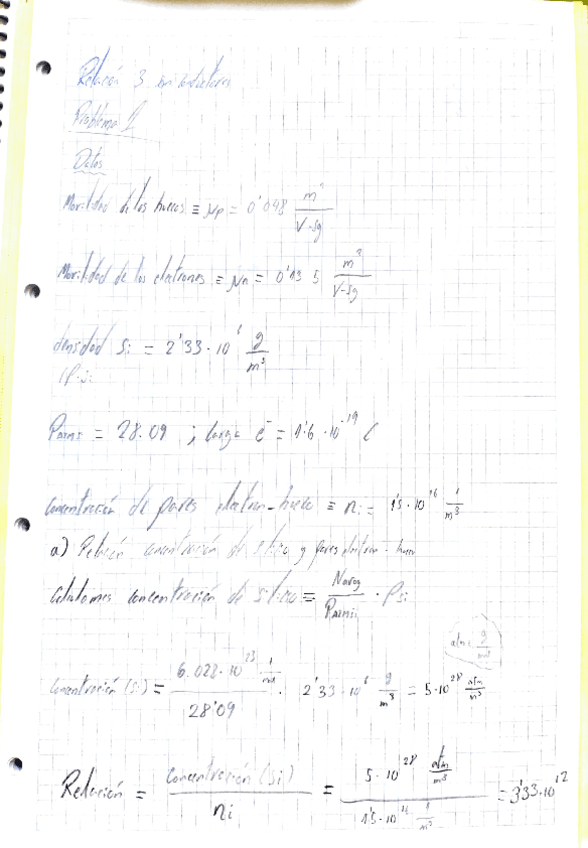 Relación 3 semiconductores
Problema 1
Datos
Movilidad de los huecos ≡ μp = 0'048 m²/V·sg
Movilidad de los electrones ≡ μn = 0'135 m²/V·sg
densidad Si = 2'33·10⁶ g/m³
Patomsi = 28.09 ; carga e⁻ = 1'6·10⁻¹⁹ C
concentración de pares electron-hueco ≡ ni = 1'5·10¹⁶ 1/m³
a) Relación concentración de silicio y pares electron-hueco
Calculamos concentración de silicio = Navog/Patomsi · ρsi
atm · g/m³
Concentración (Si) = 6.022·10²³ 1/mol / 28'09 · 2'33·10⁶ g/m³ = 5·10²⁸ atm/m³
Relación = concentración (Si)/ni = 5·10²⁸ atm/m³ / 1'5·10¹⁶ 1/m³ = 3'33·10¹²